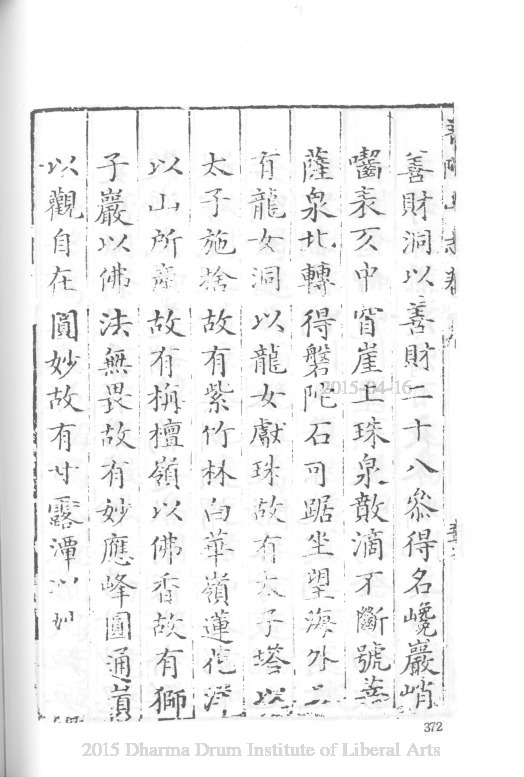 善財洞以善財二十八叅得名巉巖峭
嚙袤亥中窅崖上珠泉散滴不斷號菩
薩泉北轉得磐陀石可踞坐望海外二
有龍女洞以龍女獻珠故有太子塔以
太子施捨故有紫竹林白華嶺蓮花洋
以山所產故有栴檀嶺以佛香故有獅
子巖以佛法無畏故有妙應峰圓通嶺
以觀自在圓妙故有甘露潭以如
372
2015-04-16
2015 Dharma Drum Institute of Liberal Arts